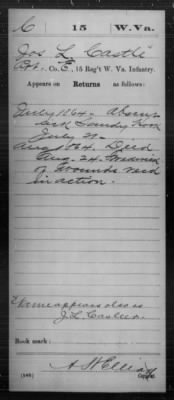 C | 15 | W. Va.
Jos L. Castle
Pvt., Co. E, 15 Reg't W. Va. Infantry.
Appears on Returns as follows:
July 1864. Absent
sick Sandy Hook
July 21.
Aug 1864. Died
Aug. 24. Frederick
of Wounds recd
in action.
Name appears also as
J. L. Casleer.
Book mark:
(546)
Copyist.